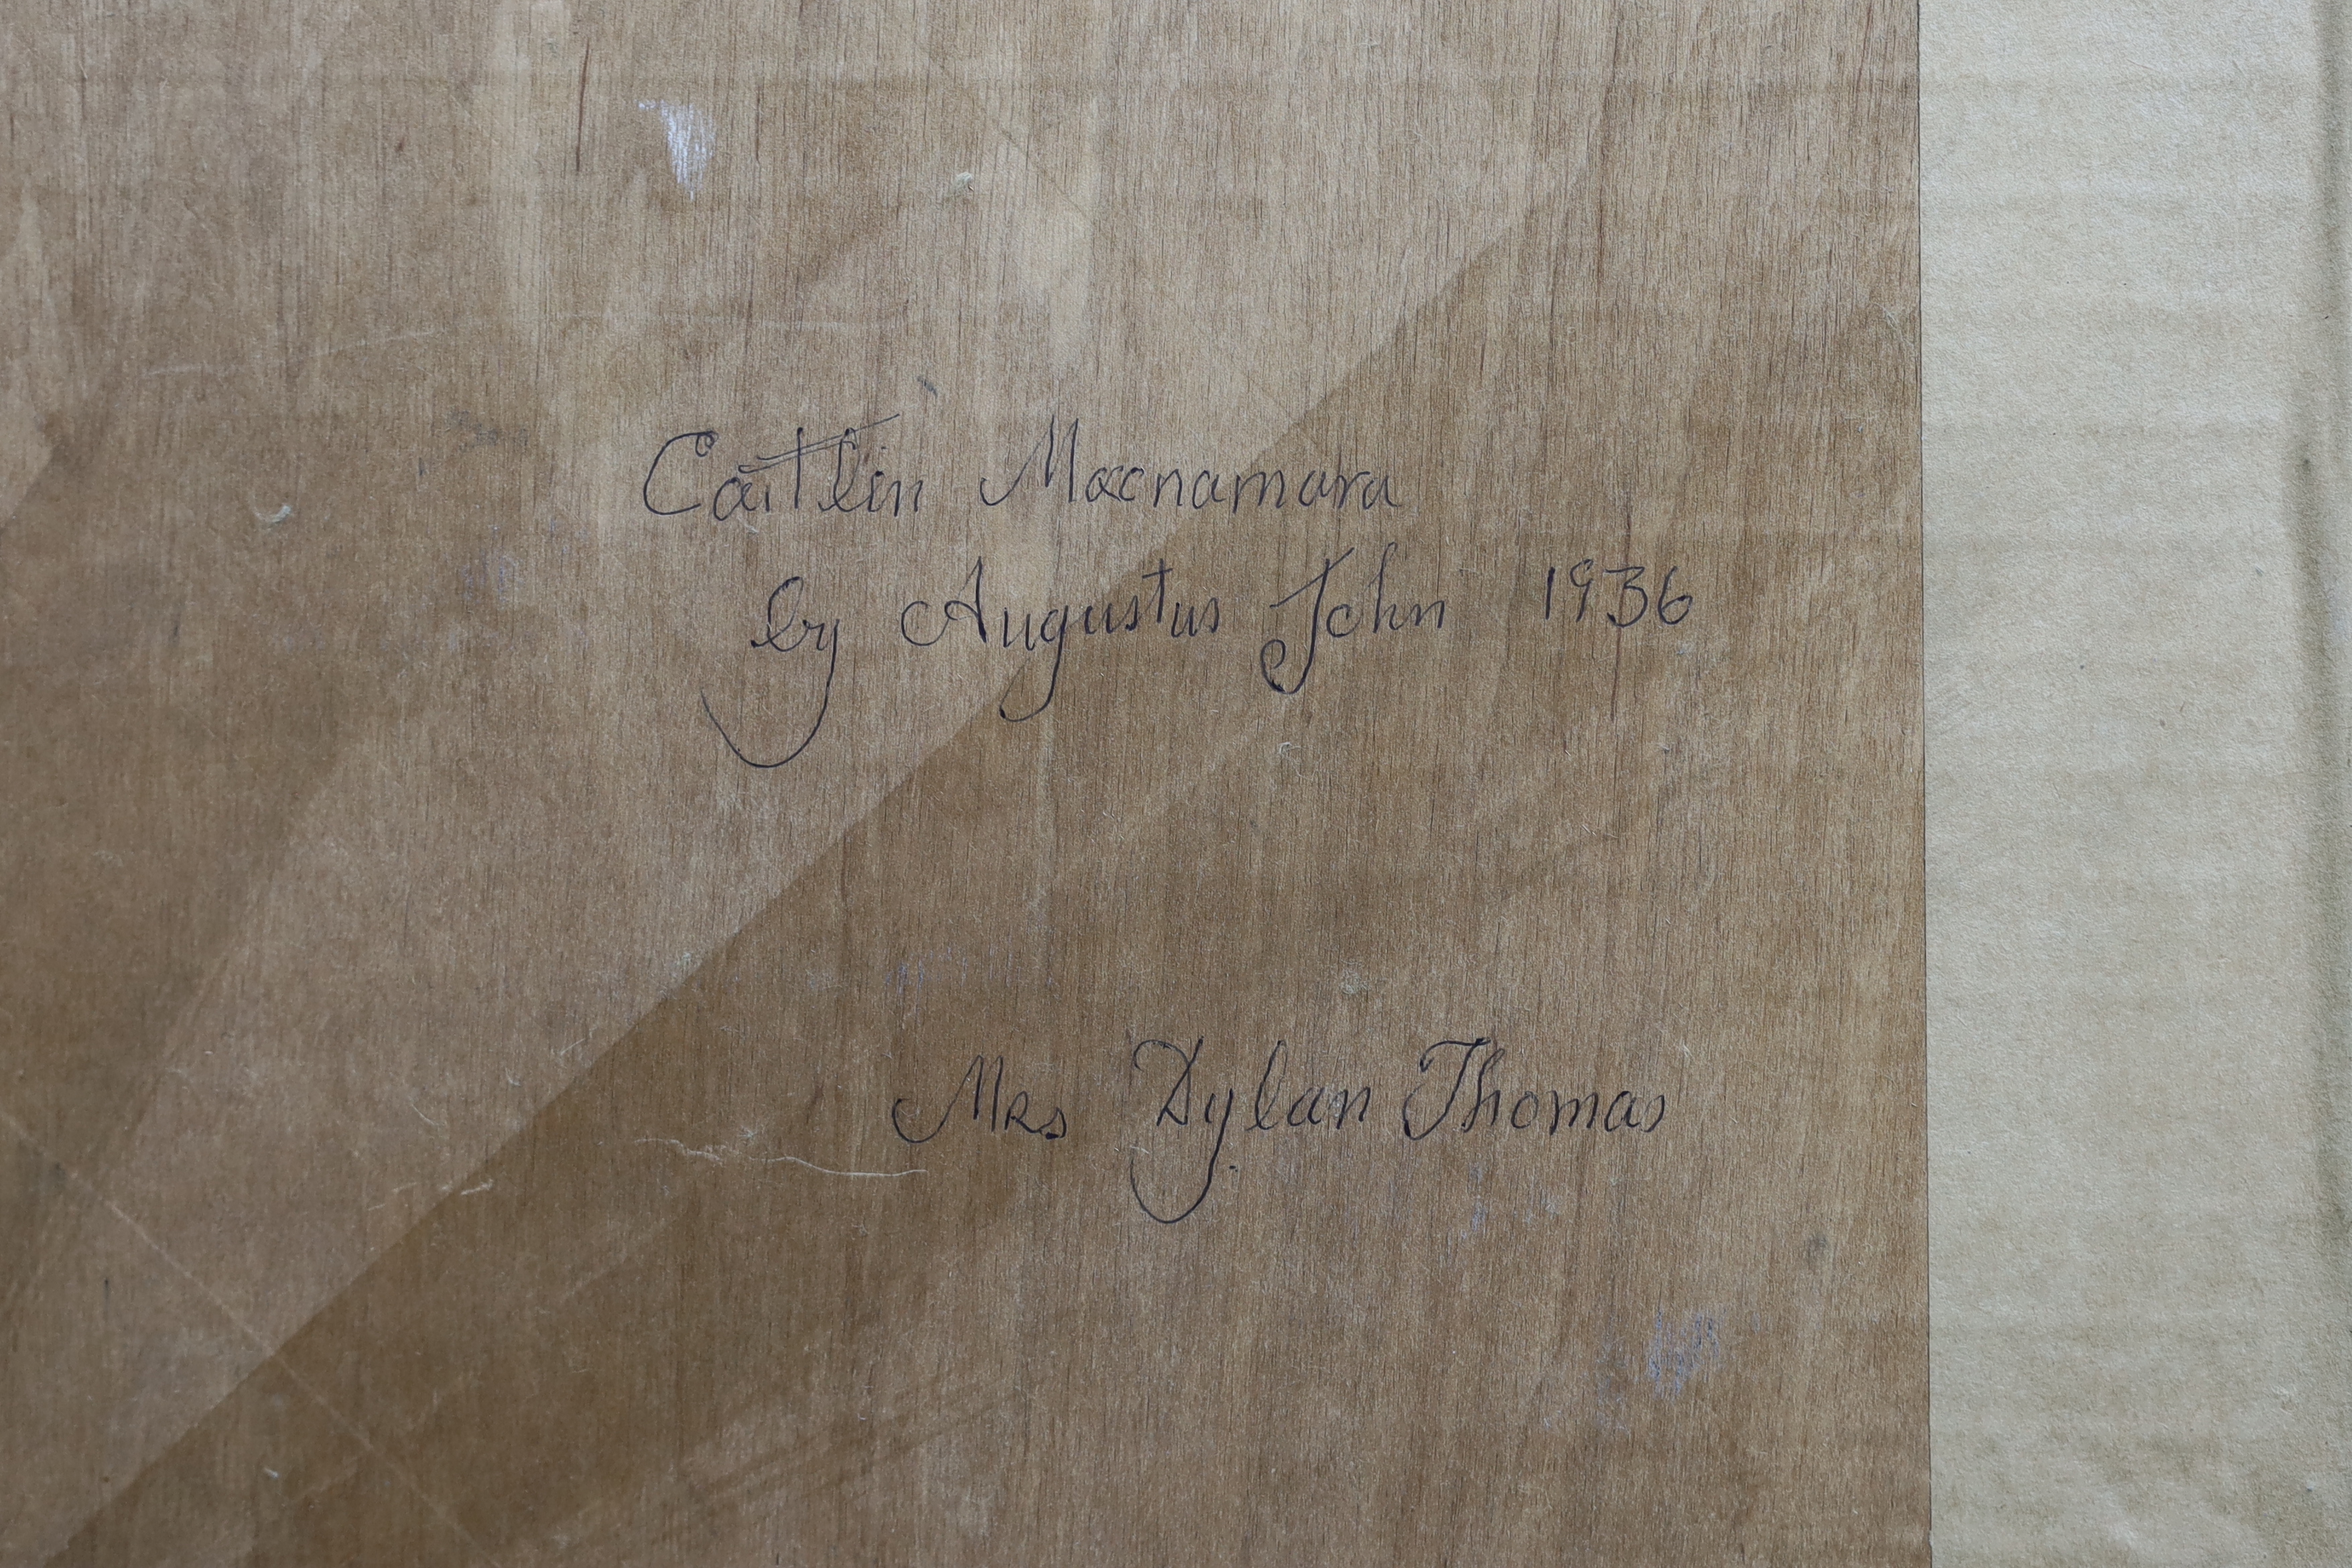 Caitlin Macnamara
by Augustus John 1936
Mrs Dylan Thomas